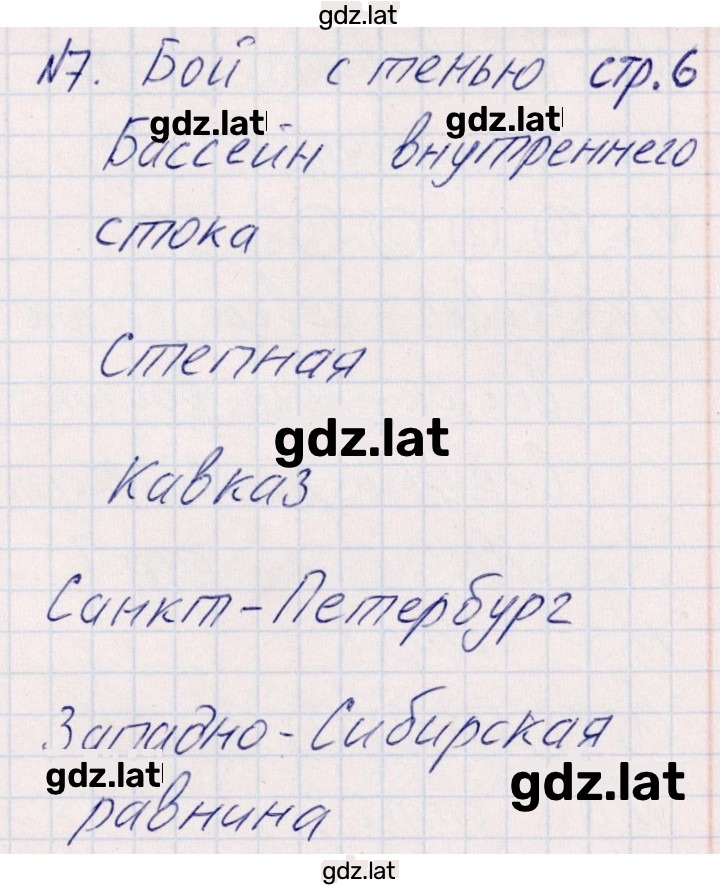 gdz.lat
№7. Бой с тенью стр.6
gdz.lat gdz.lat
Бассейн внутреннего
стока
Степная
gdz.lat
Кавказ
Санкт-Петербург
Западно-Сибирская
gdz.lat gdz.lat
равнина
gdz.lat